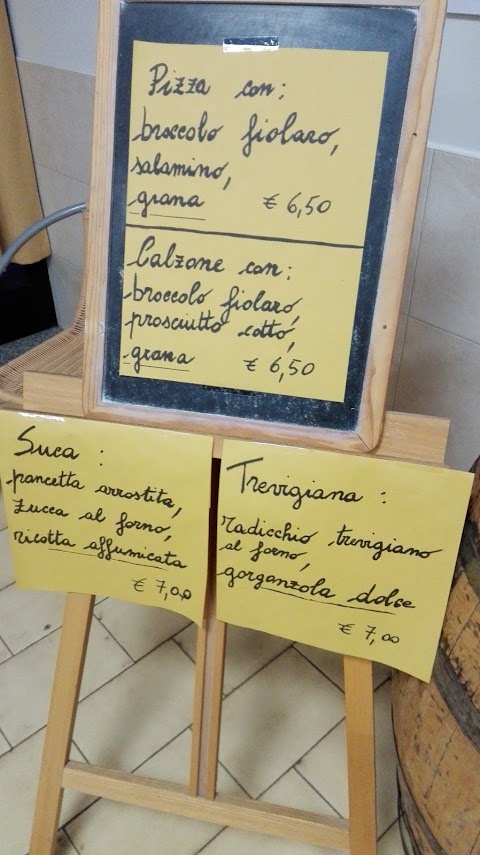 Pizza con:
broccolo fiolaro,
salamino,
grana € 6,50
Calzone con:
broccolo fiolaro,
prosciutto cotto,
grana € 6,50
Suca :
pancetta arrostita,
zucca al forno,
ricotta affumicata
€ 7,00
Trevigiana :
radicchio trevigiano
al forno,
gorgonzola dolce
€ 7,00